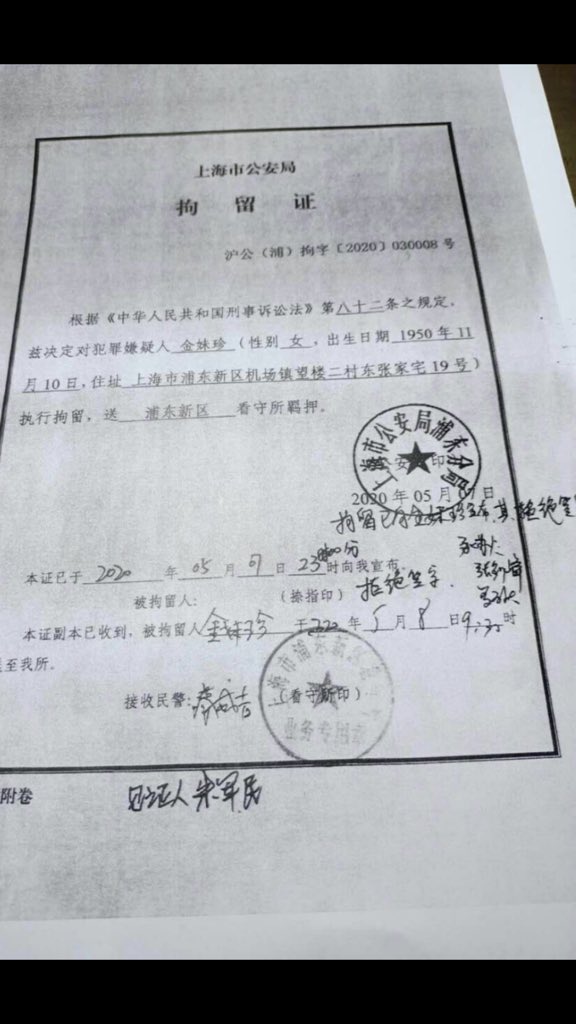 上海市公安局
拘 留 证
沪公（浦）拘字〔2020〕030008 号
根据《中华人民共和国刑事诉讼法》第八十二条之规定，
兹决定对犯罪嫌疑人 金妹珍 （性别 女 ，出生日期 1950 年 11
月 10 日，住址 上海市浦东新区机场镇望楼二村东张家宅 19 号）
执行拘留，送 浦东新区 看守所羁押。
上海市公安局浦东分局
公安 印
2020 年 05 月 07 日
拘留已向金妹珍宣布，其拒绝签
本证已于 2020 年 05 月 07 日 23 时 分向我宣布
被拘留人： （捺指印） 拒绝签字．
本证副本已收到，被拘留人 金妹珍 于 2020 年 5 月 8 日 9 时
至我所。
接收民警： （看守所印）
业务专用章
附卷 见证人 朱军民